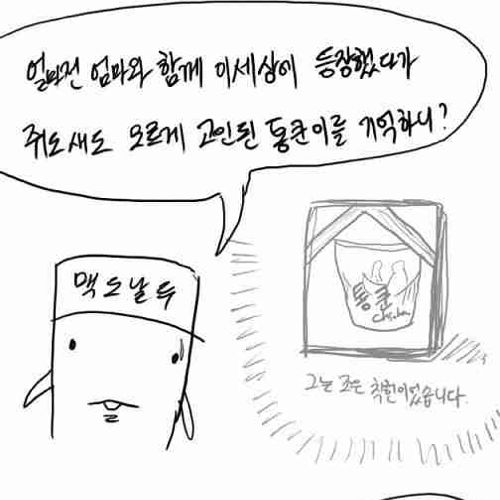 얼마전 엄마와 함께 이세상에 등장했다가
쥐도새도 모르게 고인된 통큰이를 기억하니?
맥도날두
통큰
그는 조은 치킨이었습니다.